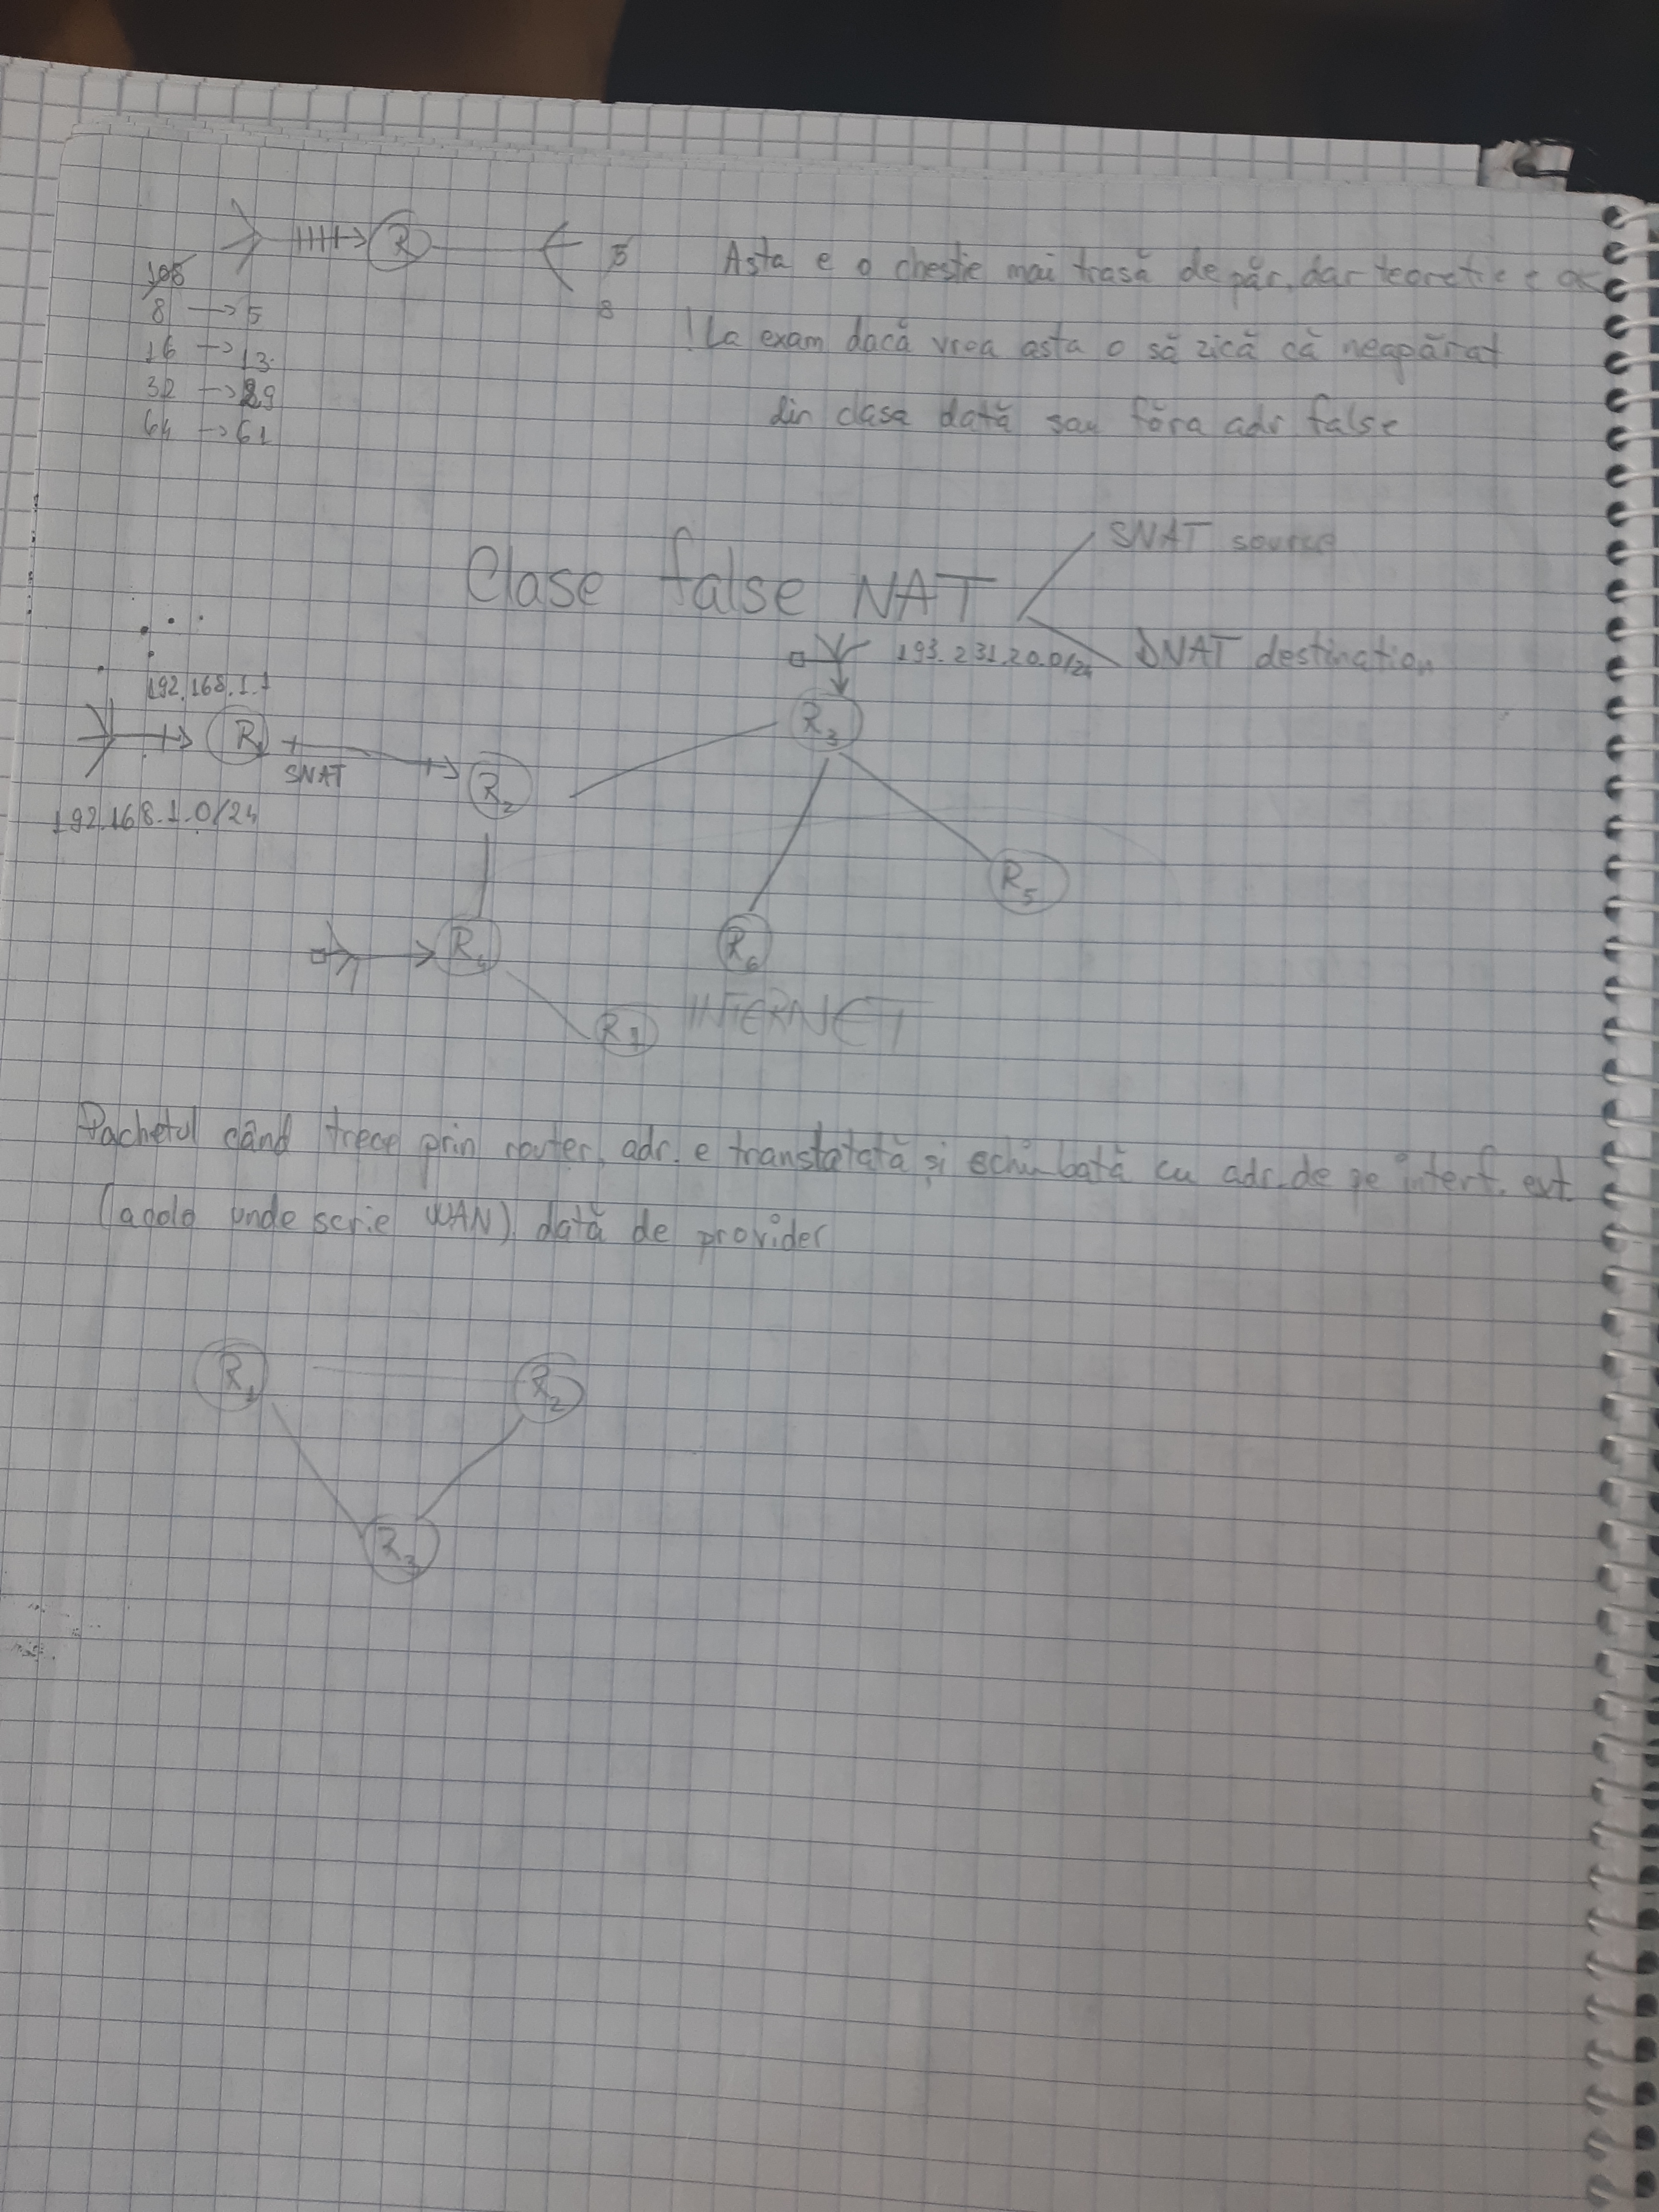 R
5
8
Asta e o chestie mai trasă de păr, dar teoretic e ok
105
8 → 5
16 → 13
32 → 29
64 → 61
! La exam dacă vrea asta o să zică că neapărat
din clasa dată sau fără adr false
Clase false NAT
SNAT source
DNAT destination
193.231.20.0/24
192.168.1.1
R1
SNAT
R2
R3
192.168.1.0/24
R5
R4
R6
R7
INTERNET
Pachetul când trece prin router, adr. e translatată și schimbată cu adr. de pe interf. ext.
(acolo unde scrie WAN) dată de provider
R1
R2
R3